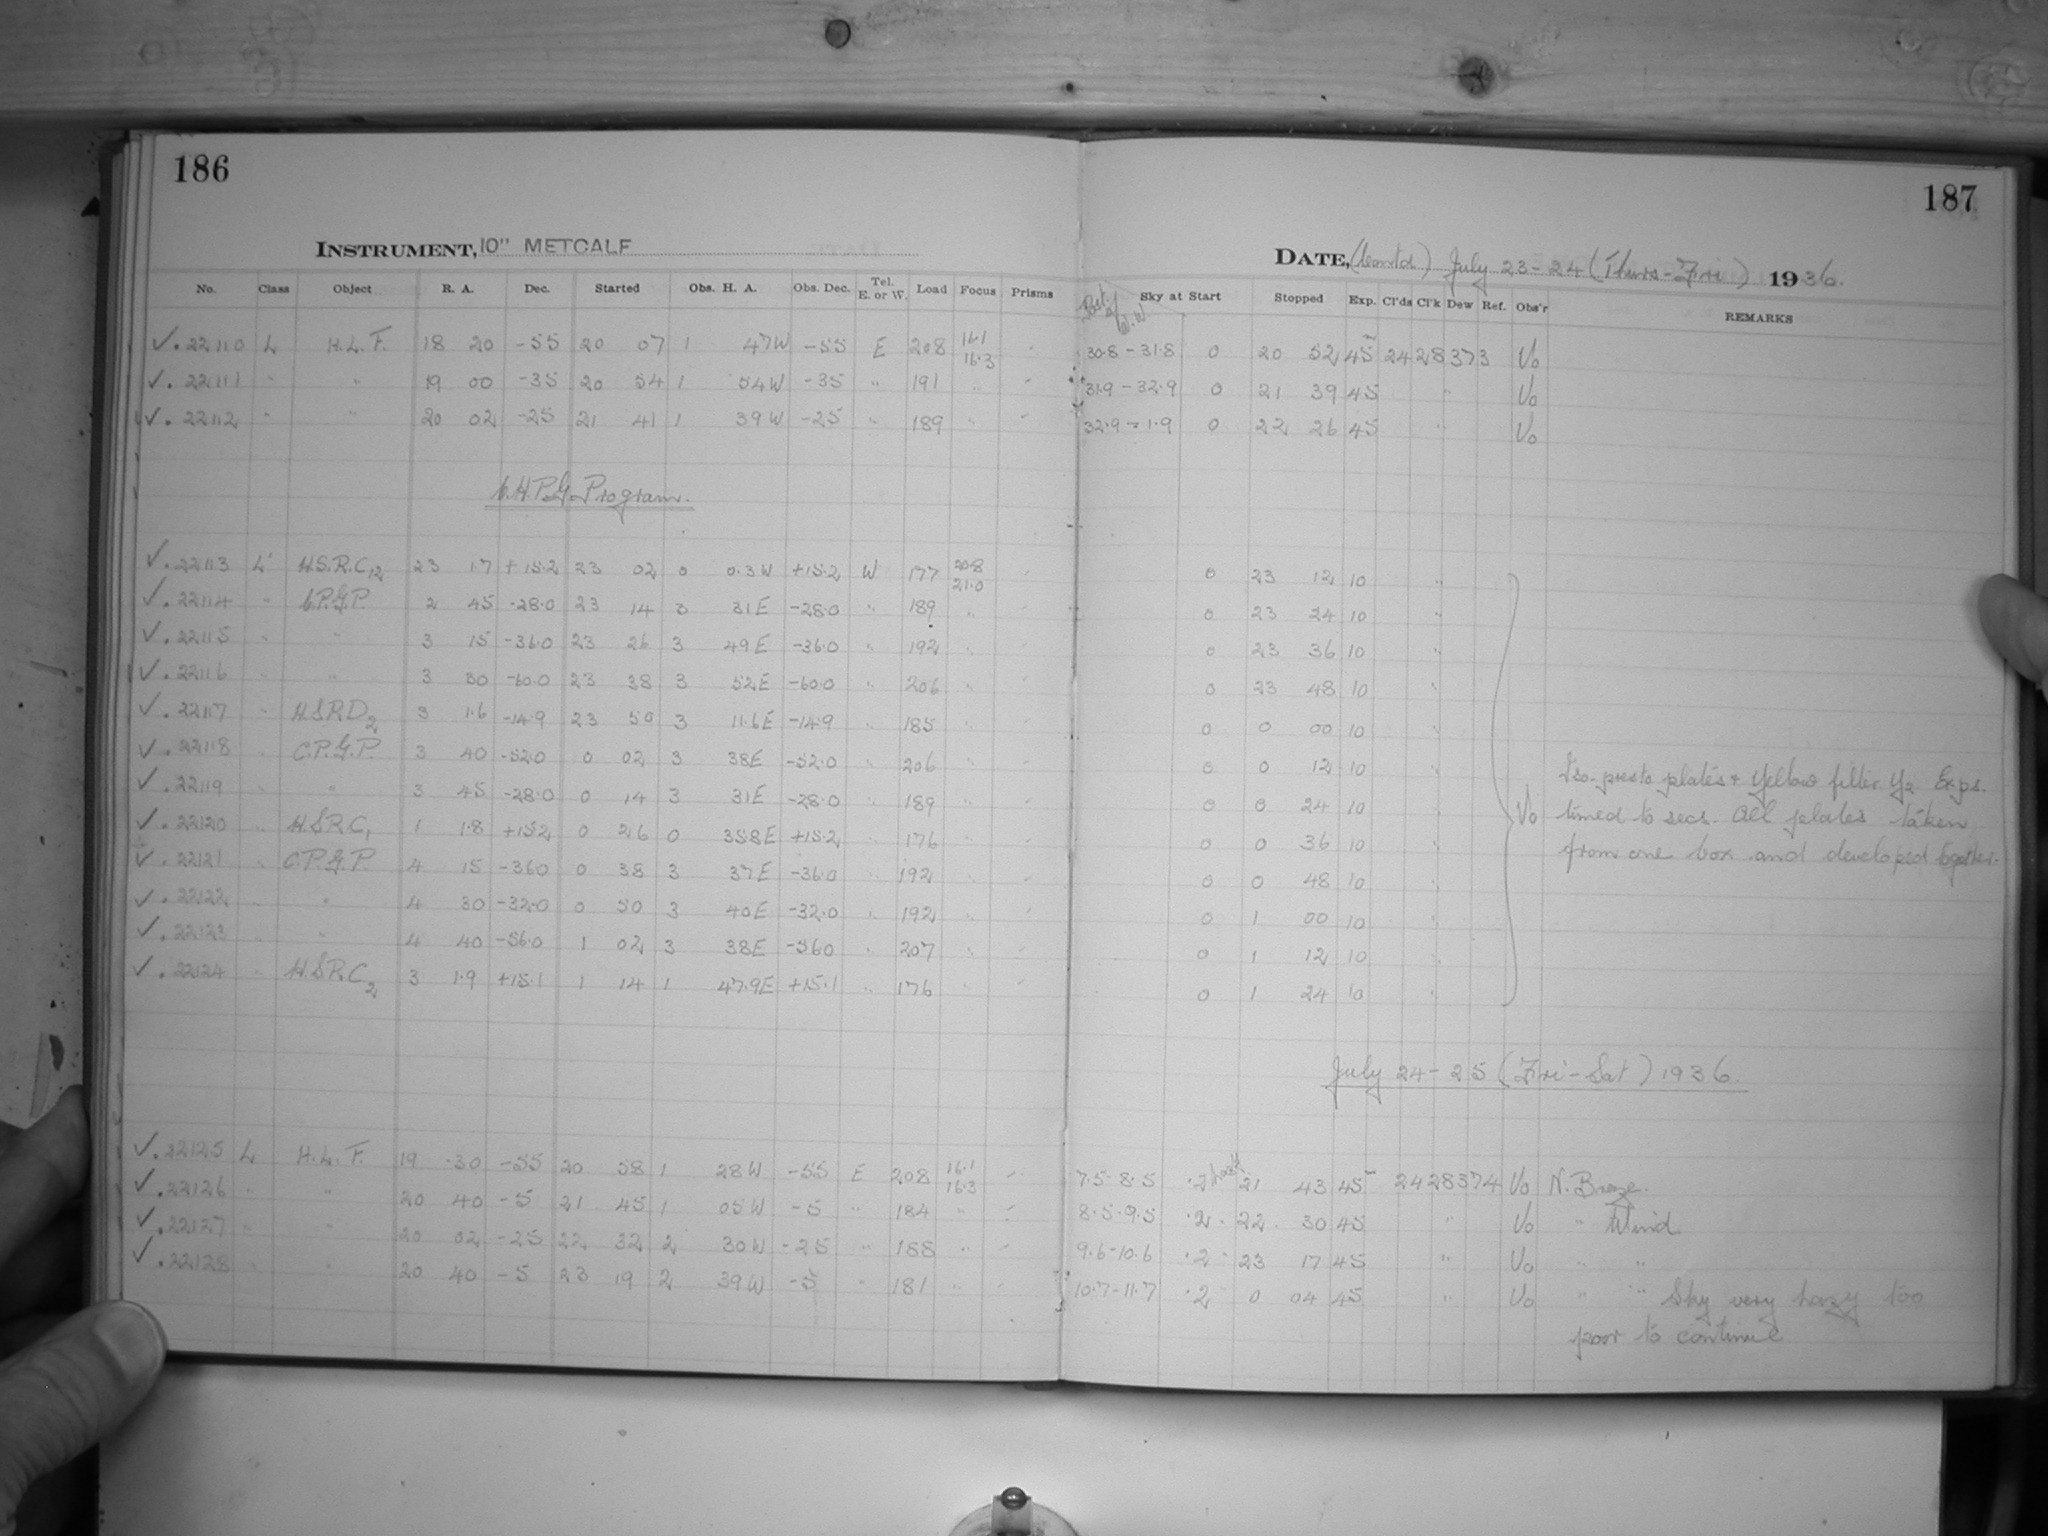 186
187
INSTRUMENT, 10" METCALF
DATE, (Contd) July 23-24 (Thurs-Fri) 1936.
No. Class Object R. A. Dec. Started Obs. H. A. Obs. Dec. Tel. E. or W. Load Focus Prisms Sky at Start Stopped Exp. Cl'ds Cl'k Dew Ref. Obs'r REMARKS
✓. 22110 L H.L.F. 18 20 -55 20 07 1 47W -55 E 208 16.1 16.3 30.8-31.8 0 20 52 45 2428373 Vo
✓. 22111 " " 19 00 -35 20 54 1 54W -35 " 191 " 31.9-32.9 0 21 39 45 " Vo
✓. 22112 " " 20 02 -25 21 41 1 39W -25 " 189 " 32.9-1.9 0 22 26 45 " Vo
C.H.P.G. Program.
✓. 22113 L H.S.R.C12 23 1.7 +15.2 23 02 0 0.3W +15.2 W 177 20.8 21.0 0 23 12 10 "
✓. 22114 " C.P.G.P. 2 45 -28.0 23 14 3 31E -28.0 " 189 " 0 23 24 10 "
✓. 22115 " " 3 15 -36.0 23 26 3 49E -36.0 " 192 " 0 23 36 10 "
✓. 22116 " " 3 30 -60.0 23 38 3 52E -60.0 " 206 " 0 23 48 10 "
✓. 22117 " H.S.R.D2 3 1.6 -14.9 23 50 3 11.6E -14.9 " 185 " 0 0 00 10 "
✓. 22118 " C.P.G.P. 3 40 -52.0 0 02 3 38E -52.0 " 206 " 0 0 12 10 "
✓. 22119 " " 3 45 -28.0 0 14 3 31E -28.0 " 189 " 0 0 24 10 "
✓. 22120 " H.S.R.C1 1 1.8 +15.2 0 26 0 35.8E +15.2 " 176 " 0 0 36 10 "
✓. 22121 " C.P.G.P. 4 15 -36.0 0 38 3 37E -36.0 " 192 " 0 0 48 10 "
✓. 22122 " " 4 30 -32.0 0 50 3 40E -32.0 " 192 " 0 1 00 10 "
✓. 22123 " " 4 40 -56.0 1 02 3 38E -56.0 " 207 " 0 1 12 10 "
✓. 22124 " H.S.R.C2 3 1.9 +15.1 1 14 1 47.9E +15.1 " 176 " 0 1 24 10 "
Vo Iso-presto plates & yellow filter Y2 Exps.
timed to secs. All plates taken
from one box and developed together.
July 24-25 (Fri-Sat) 1936.
✓. 22125 L H.L.F. 19 30 -55 20 58 1 28W -55 E 208 16.1 16.3 7.5-8.5 .2 21 43 45 2428374 Vo N. Breeze.
✓. 22126 " " 20 40 -5 21 45 1 05W -5 " 184 " 8.5-9.5 .2 " 22 30 45 " Vo " Wind
✓. 22127 " " 20 02 -25 22 32 2 30W -25 " 188 " 9.6-10.6 .2 " 23 17 45 " Vo " "
✓. 22128 " " 20 40 -5 23 19 2 39W -5 " 181 " 10.7-11.7 .2 " 0 04 45 " Vo " " Sky very hazy too
poor to continue